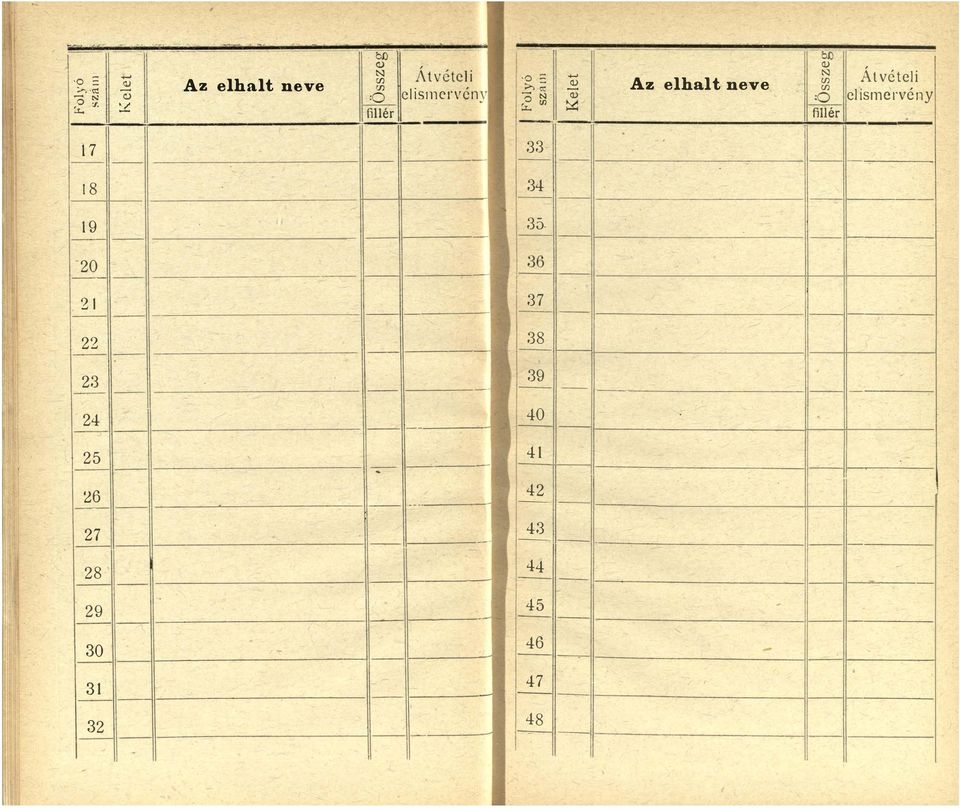 Folyó szám Kelet Az elhalt neve Összeg fillér Átvételi elismervény
17
18
19
20
21
22
23
24
25
26
27
28
29
30
31
32
Folyó szám Kelet Az elhalt neve Összeg fillér Átvételi elismervény
33
34
35
36
37
38
39
40
41
42
43
44
45
46
47
48